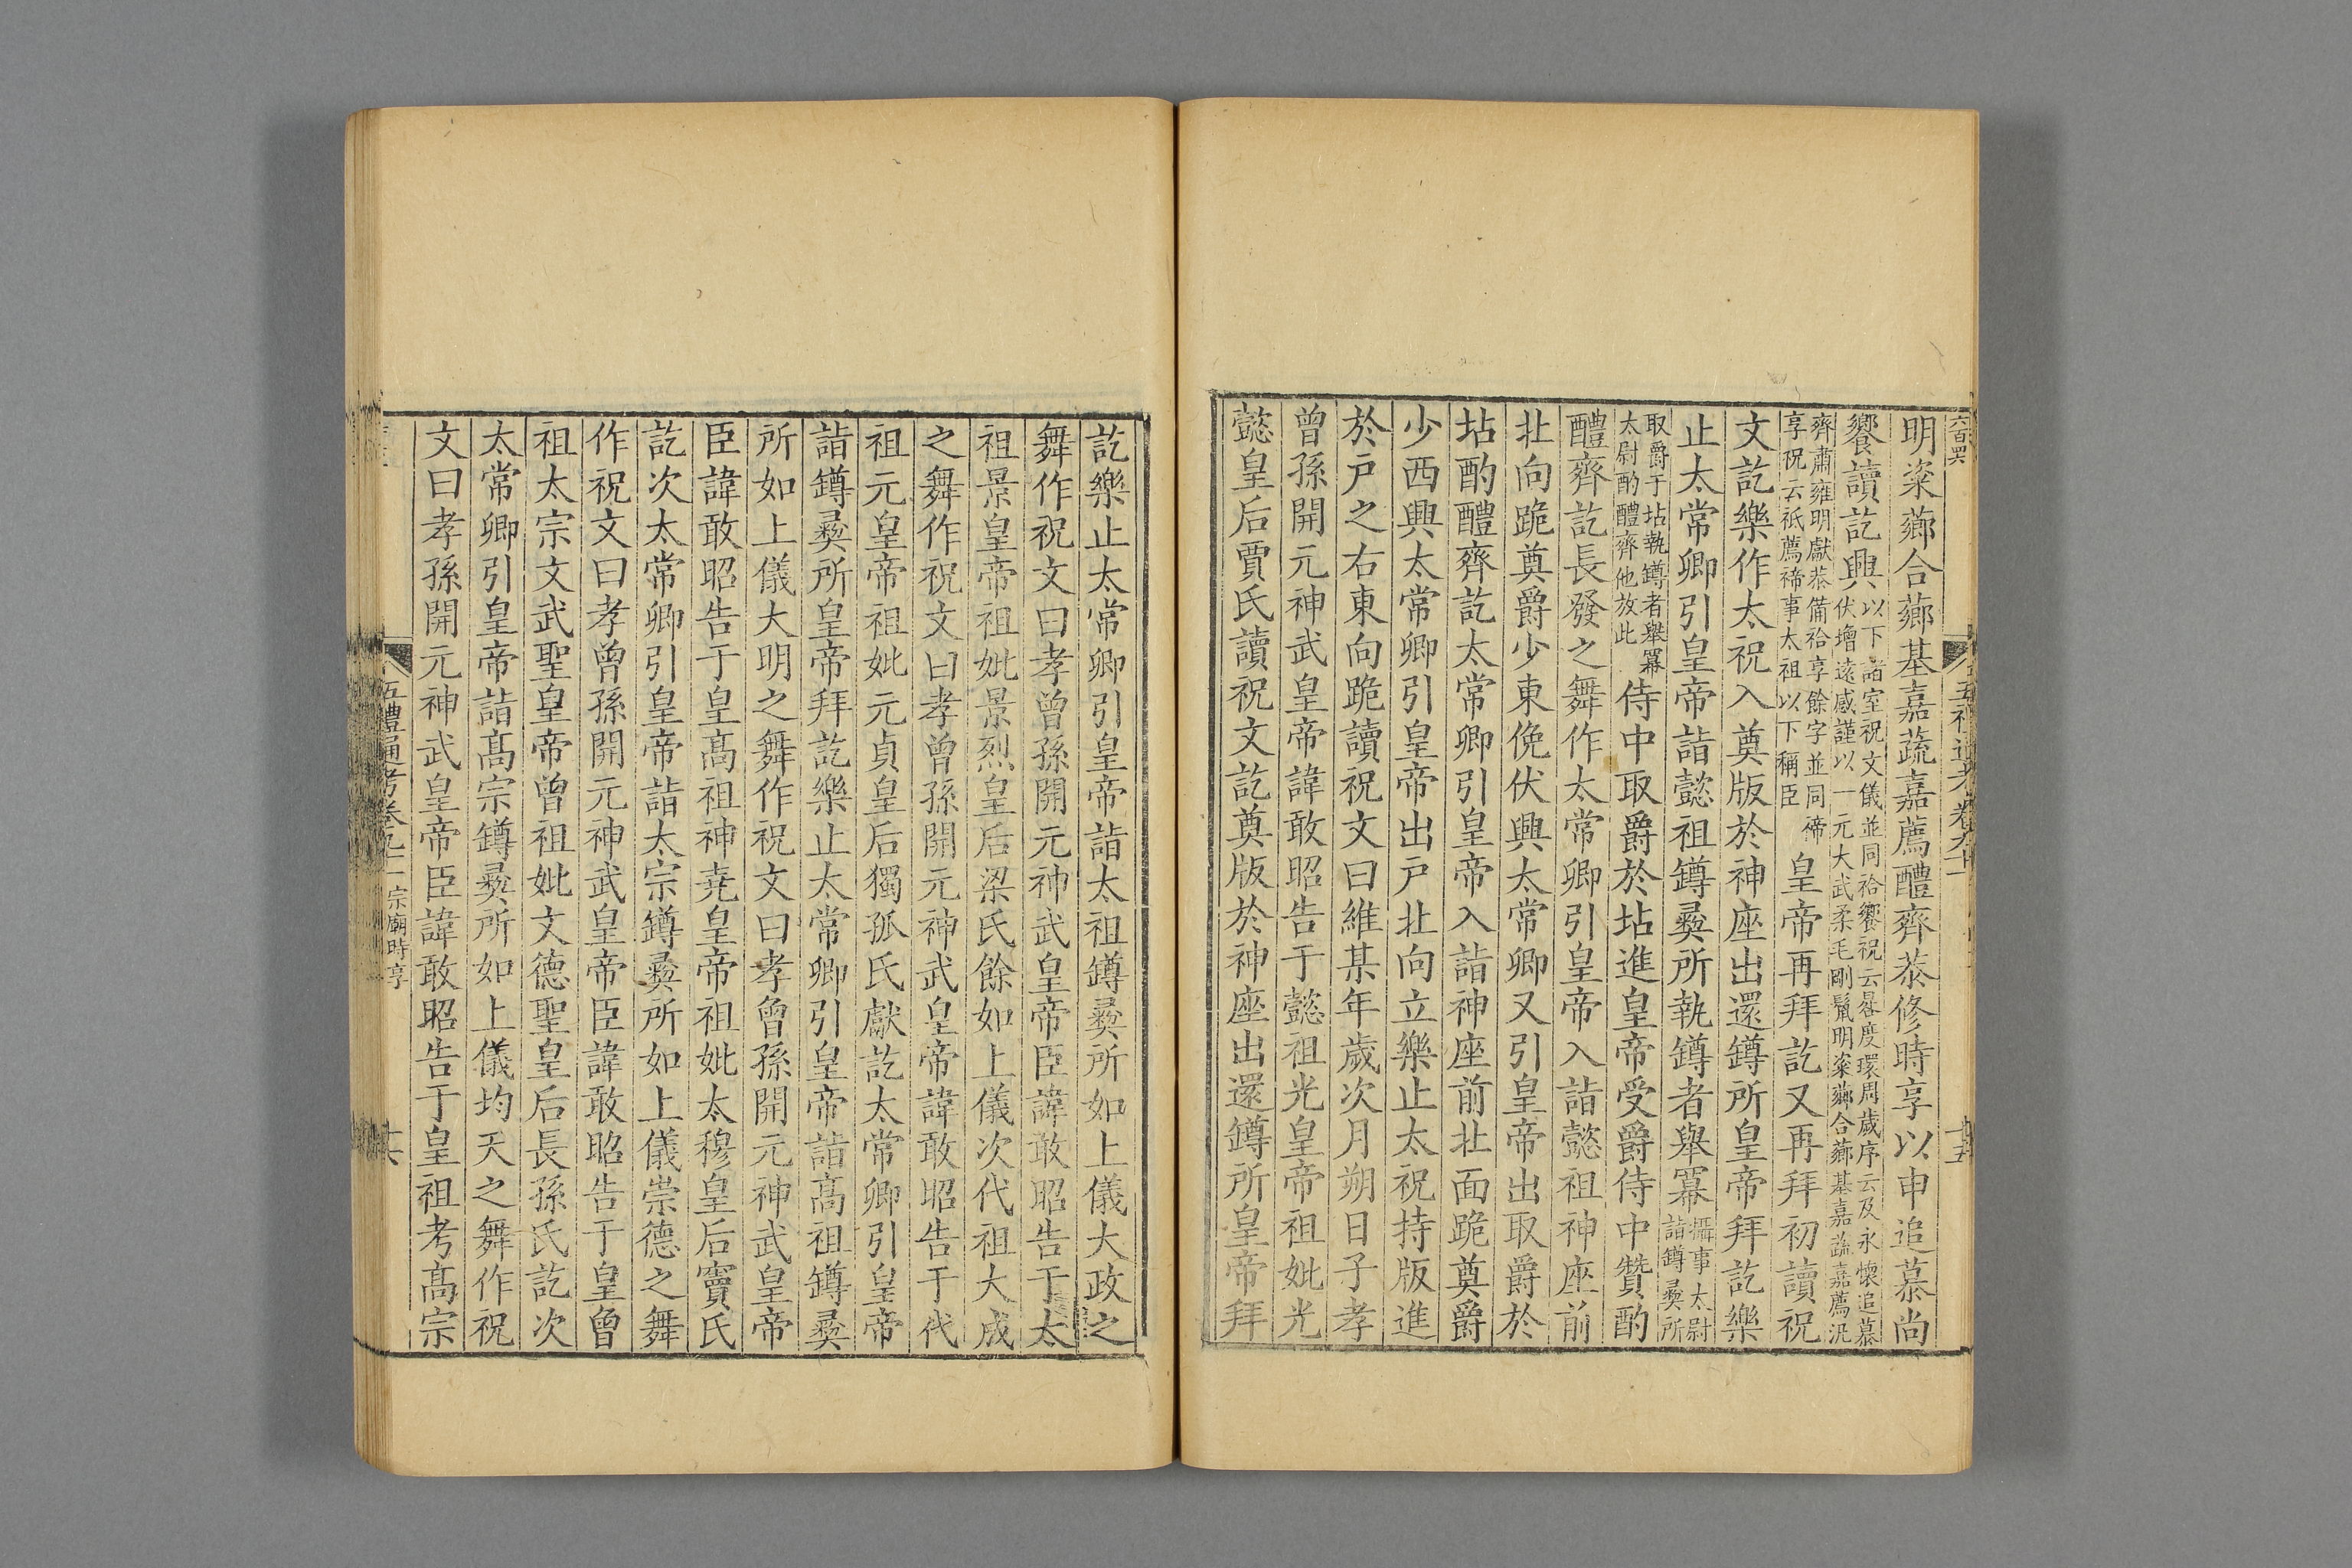 六百四
明粢薌合薌萁嘉蔬嘉薦醴齊恭修時享以申追慕尚
饗讀訖興以下諸室祝文儀並同祫饗祝云晷度環周歲序云及永懷追慕
伏增遠感謹以一元大武柔毛剛鬣明粢薌合薌萁嘉蔬嘉薦汎
齊肅雍明獻恭備祫享餘字並同禘
享祝云祇薦禘事太祖以下稱臣皇帝再拜訖又再拜初讀祝
文訖樂作太祝入奠版於神座出還罇所皇帝拜訖樂
止太常卿引皇帝詣懿祖罇彝所執罇者舉羃攝事太尉
詣罇彝所
取爵于坫執罇者舉羃
太尉酌醴齊他放此侍中取爵於坫進皇帝受爵侍中贊酌
醴齊訖長發之舞作太常卿引皇帝入詣懿祖神座前
北向跪奠爵少東俛伏興太常卿又引皇帝出取爵於
坫酌醴齊訖太常卿引皇帝入詣神座前北面跪奠爵
少西興太常卿引皇帝出戶北向立樂止太祝持版進
於戶之右東向跪讀祝文曰維某年歲次月朔日子孝
曾孫開元神武皇帝諱敢昭告于懿祖光皇帝祖妣光
懿皇后賈氏讀祝文訖奠版於神座出還罇所皇帝拜
訖樂止太常卿引皇帝詣太祖罇彝所如上儀大政之
舞作祝文曰孝曾孫開元神武皇帝臣諱敢昭告于太
祖景皇帝祖妣景烈皇后梁氏餘如上儀次代祖大成
之舞作祝文曰孝曾孫開元神武皇帝諱敢昭告于代
祖元皇帝祖妣元貞皇后獨孤氏獻訖太常卿引皇帝
詣罇彝所皇帝拜訖樂止太常卿引皇帝詣高祖罇彝
所如上儀大明之舞作祝文曰孝曾孫開元神武皇帝
臣諱敢昭告于皇高祖神堯皇帝祖妣太穆皇后竇氏
訖次太常卿引皇帝詣太宗罇彝所如上儀崇德之舞
作祝文曰孝曾孫開元神武皇帝臣諱敢昭告于皇曾
祖太宗文武聖皇帝曾祖妣文德聖皇后長孫氏訖次
太常卿引皇帝詣高宗罇彝所如上儀均天之舞作祝
文曰孝孫開元神武皇帝臣諱敢昭告于皇祖考高宗
五禮通考卷九十一宗廟時享
十六